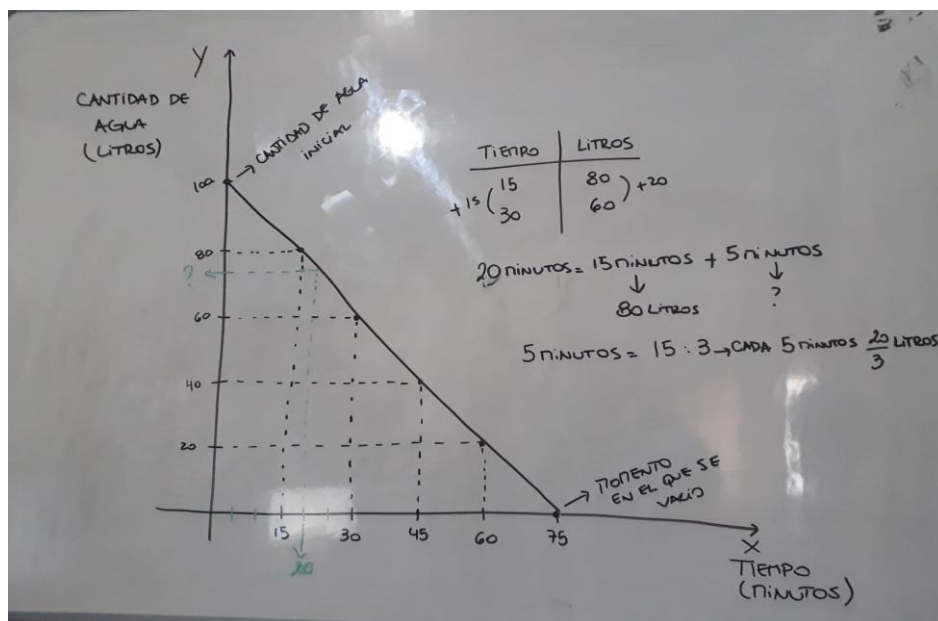 Y
CANTIDAD DE
AGUA
(LITROS)
→ CANTIDAD DE AGUA
INICIAL
100
80
?
60
40
20
15
30
45
60
75
20
→ MOMENTO
EN EL QUE SE
VACIO
X
TIEMPO
(MINUTOS)
TIEMPO LITROS
+15 ( 15 80 ) +20
30 60
20 MINUTOS = 15 MINUTOS + 5 MINUTOS
↓ ↓
80 LITROS ?
5 MINUTOS = 15 : 3 → CADA 5 MINUTOS 20/3 LITROS